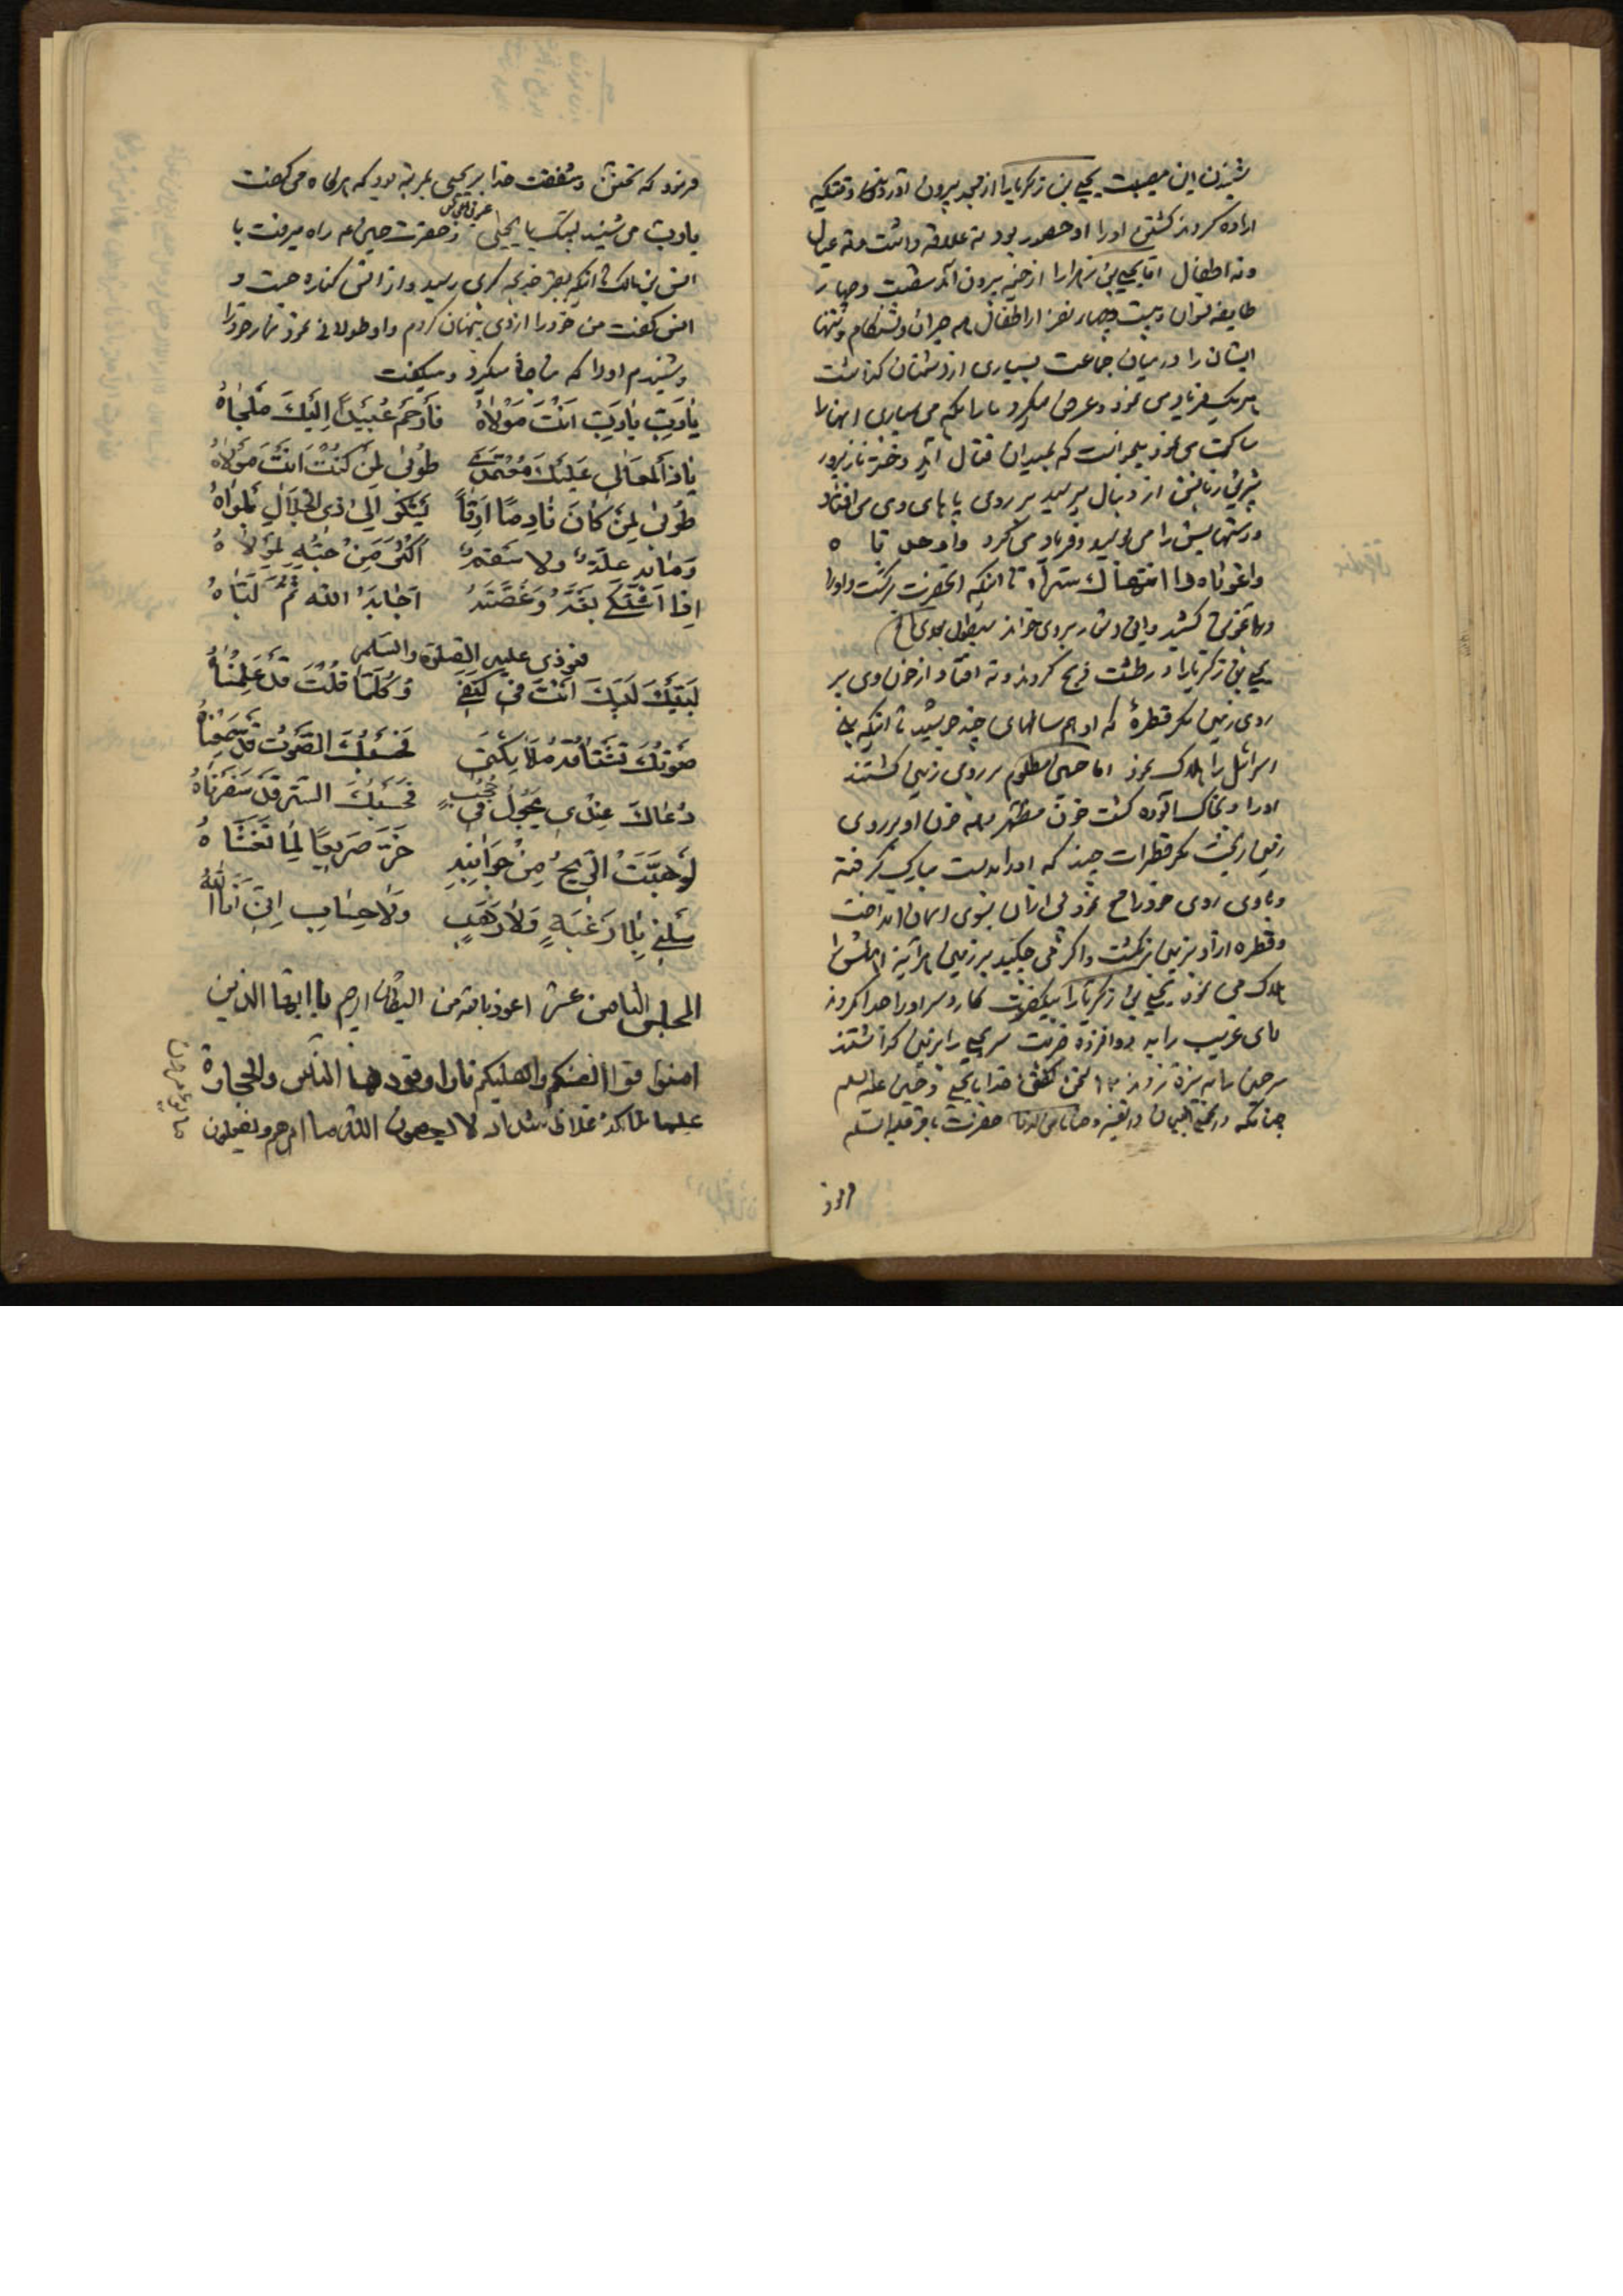 شنیدن این مصیبت یحیی بن زکریا را از مسجد بیرون آوردند وقتیکه
اراده کردند کشتن او را او حصور بود نه علاقه داشت و نه عیال
و نه اطفال اما یحیی بن زهرا را از خیمه بیرون آمد شصت و چهار
طایفه نسوان و بیست و چهار نفر از اطفال همه حیران و تشنه کام و تنها
ایشان را در میان جماعت بسیاری از دشمنان گذاشت
هر یک فریاد می نمود و عرض میکرد ما را بکه می سپاری آنها را
ساکت می نمود میخواست که بمیدان قتال آید دختر نازپرور
شیرین زبانش از دنبال میرسید بر روی پا های وی می افتاد
و دستهایش را می بوسید و فریاد می کرد
وا غوثاه تا اینکه آنحضرت برگشت و او را
در آغوش کشید و این اشعار بروی خواند سیطول بعدی الخ
یحیی بن زکریا را در طشت ذبح کردند و نه افتاد از خون وی بر
روی زمین مگر قطرهٔ که او هم سالهای چند جوشید تا اینکه بنی
اسرائیل را هلاک نمود اما حسین مظلوم بر روی زمین کشتند
او را و بخاکسا آلوده گشت خون مطهر همه خون او بر روی
زمین ریخت مگر قطرات چند که او را بدست مبارک گرفته
و با وی روی خود را مسح نمود پس از آن بسوی آسمان انداخت
و قطره از او بزمین برنگشت و اگر می چکید بر زمین هر آینه اهلش را
هلاک می نمود یحیی بن زکریا را بیکضربت کارد سر او را جدا کردند
مای غریب را به دوازده ضربت سر یحیی را بزمین گذاشتند
سر حسین را به نیزه زدند سخن گفتن خدا با یحیی و حسین علیه السلم
چنانکه در تفسیر حضرت باقر علیه السلم
فرمود
فرمود که تحنن و شفقت خدا بر یحیی بمرتبه بود که هرگاه می گفت
یا رب می شنید لبیک یا یحیی و حضرت حسین ع م راه میرفت با
انس بن مالک تا اینکه بقبر خدیجه کبری رسید و از انس کناره جست و
انس گفت من خود را از وی پنهان کردم و او طولانی نمود نماز خود را
و شنیدم او را که مناجاة میکرد و میگفت
یا رَبِّ یا رَبِّ اَنْتَ مَوْلاهُ فَأَرْحَمْ عُبَیْداً اِلَیْكَ مَلْجاهُ
یا ذَا الْمَعالی عَلَیْكَ مُعْتَمَدی طُوبی لِمَنْ كُنْتَ اَنْتَ مَوْلاهُ
طُوبی لِمَنْ كانَ نادِماً اَرِقاً یَشْكُو اِلی ذِی الْجَلالِ بَلْواهُ
وَما بِهِ عِلَّةٌ ولا سَقَمٌ اَكْثَرَ مِنْ حُبِّهِ لِمَوْلاهُ
اِذَا اشْتَكی بَثَّهُ وَغُصَّتَهُ اَجابَهُ اللّه ثُمَّ لَبَّاهُ
فنودی علیه الصلوة والسلم
لَبَّیْكَ لَبَّیْكَ اَنْتَ فی كَنَفی وَكُلَّما قُلْتَ قَدْ عَلِمْناهُ
صَوْتُكَ تَشْتاقُهُ مَلائِكَتی فَحَسْبُكَ الصَّوْتُ قَدْ سَمِعْناهُ
دُعاكَ عِنْدی یَجُولُ فی حُجُبٍ فَحَسْبُكَ السِّتْرُ قَدْ سَفَرْناهُ
لَوْ هَبَّتِ الرّیحُ مِنْ جَوانِبِهِ خَرَّ صَریعاً لِما تَغَشّاهُ
سَلْنی بِلا رَغْبَةٍ وَلا رَهَبٍ وَلا حِسابٍ اِنّی اَنَا اللّهُ
المجلس الثامن عشر اعوذ بالله من الشیطان الرجیم یا ایها الذین
امنوا قوا انفسکم واهلیکم نارا وقودها الناس والحجارة
علیها ملائکة غلاظ شداد لا یعصون الله ما امرهم ویفعلون
ما یؤمرون